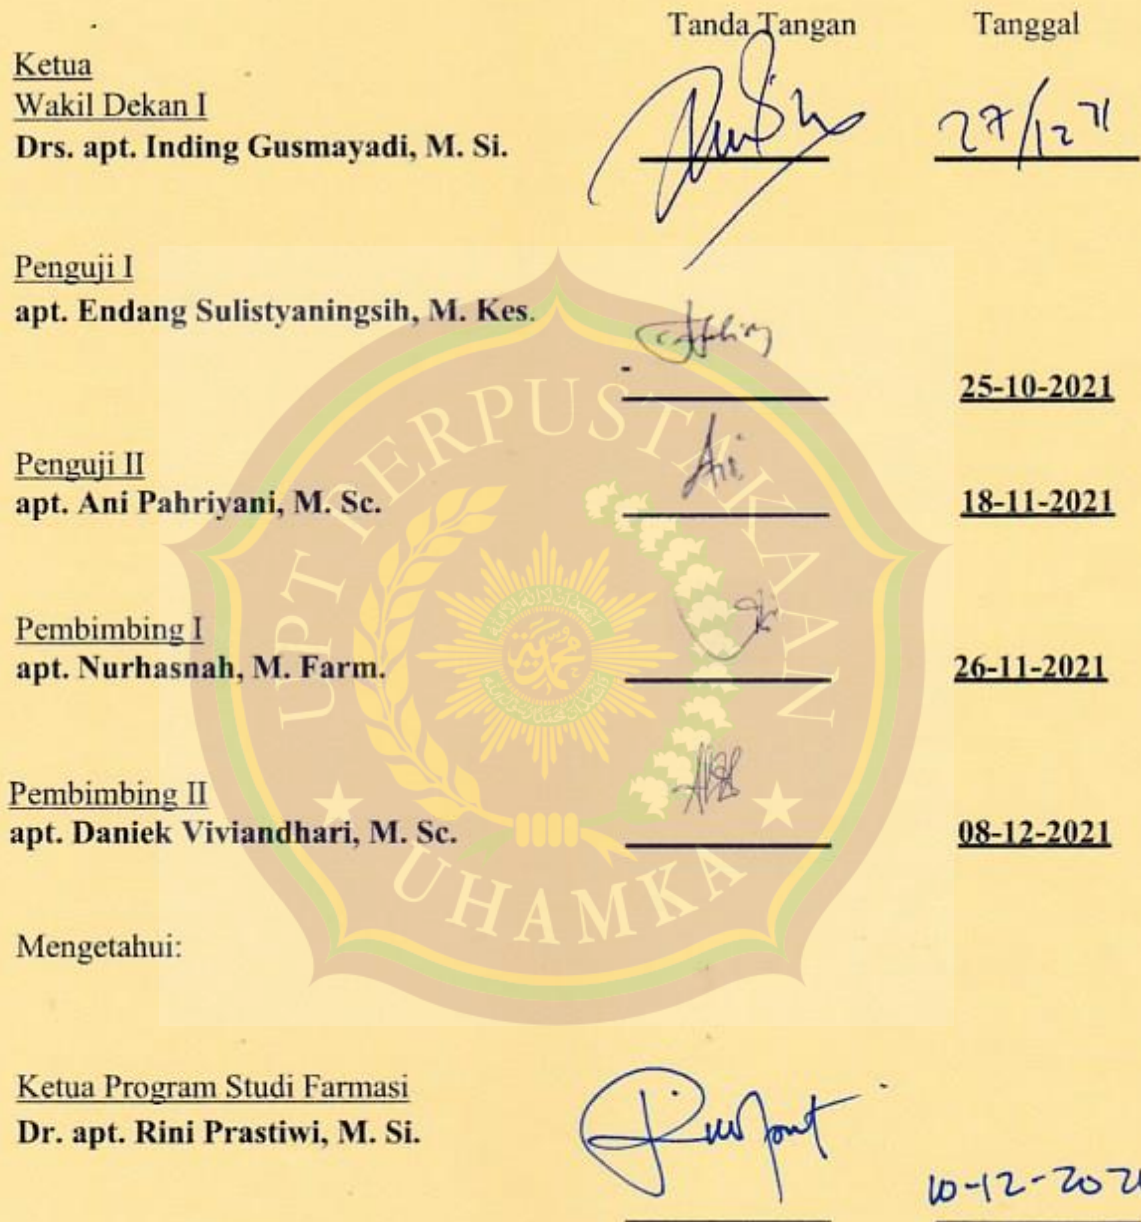 Tanda Tangan Tanggal
Ketua
Wakil Dekan I
Drs. apt. Inding Gusmayadi, M. Si.
27/12 21
Penguji I
apt. Endang Sulistyaningsih, M. Kes.
25-10-2021
Penguji II
apt. Ani Pahriyani, M. Sc.
Ani
18-11-2021
Pembimbing I
apt. Nurhasnah, M. Farm.
26-11-2021
Pembimbing II
apt. Daniek Viviandhari, M. Sc.
08-12-2021
Mengetahui:
Ketua Program Studi Farmasi
Dr. apt. Rini Prastiwi, M. Si.
10-12-2021
UPT PERPUSTAKAAN
UHAMKA